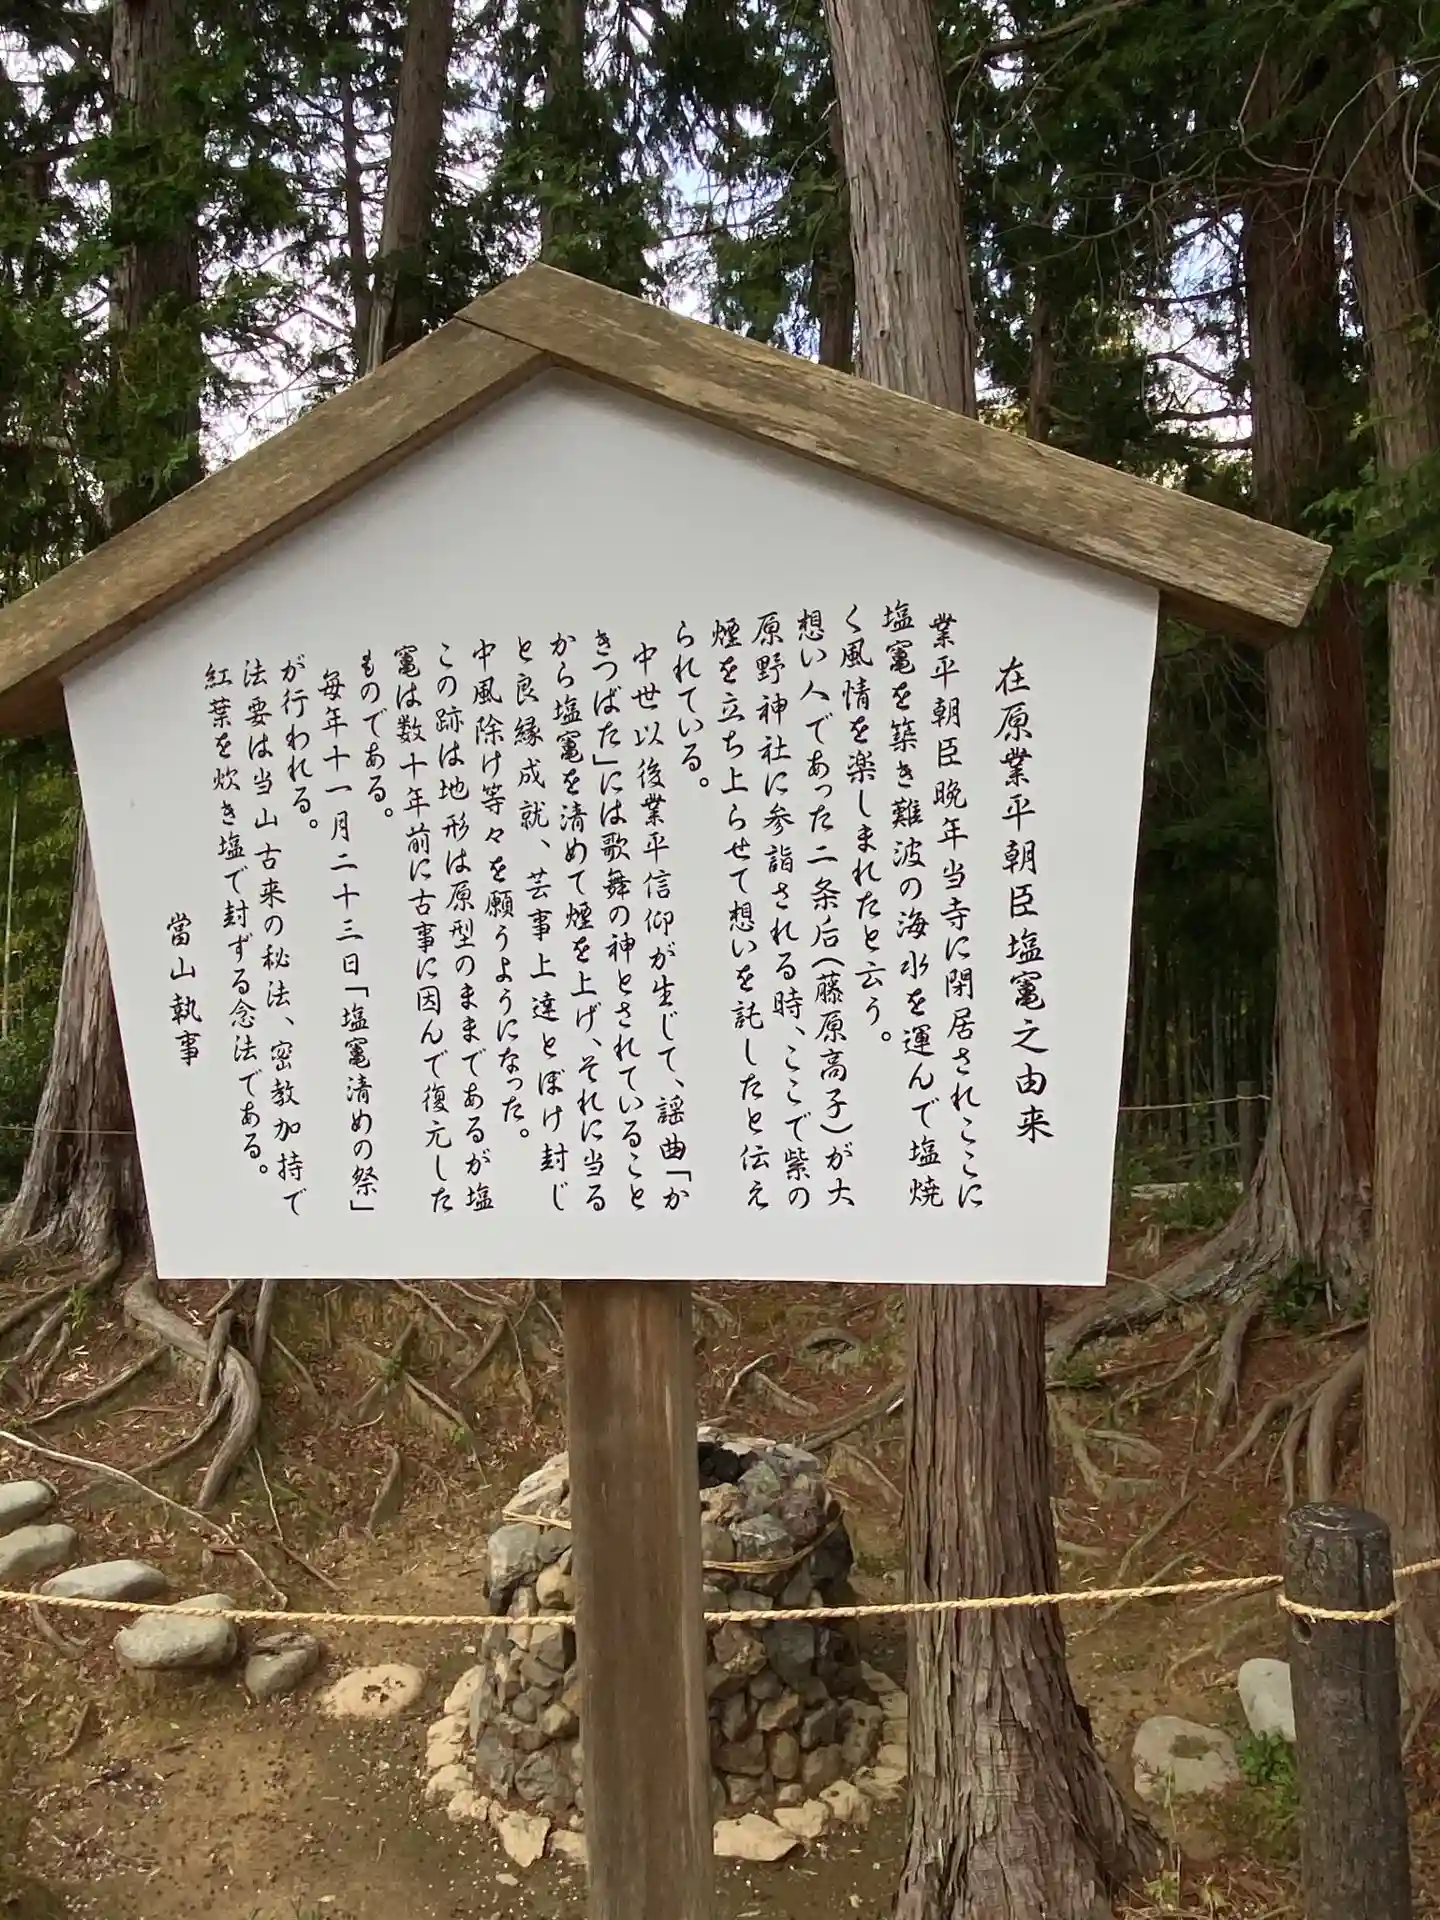 在原業平朝臣塩竈之由来
業平朝臣晩年当寺に閑居されここに
塩竈を築き難波の海水を運んで塩焼
く風情を楽しまれたと云う。
想い人であった二条后(藤原高子)が大
原野神社に参詣される時、ここで紫の
煙を立ち上らせて想いを託したと伝え
られている。
中世以後業平信仰が生じて、謡曲「か
きつばた」には歌舞の神とされていること
から塩竈を清めて煙を上げ、それに当る
と良縁成就、芸事上達とぼけ封じ
中風除け等々を願うようになった。
この跡は地形は原型のままであるが塩
竈は数十年前に古事に因んで復元した
ものである。
毎年十一月二十三日「塩竈清めの祭」
が行われる。
法要は当山古来の秘法、密教加持で
紅葉を炊き塩で封ずる念法である。
當山執事